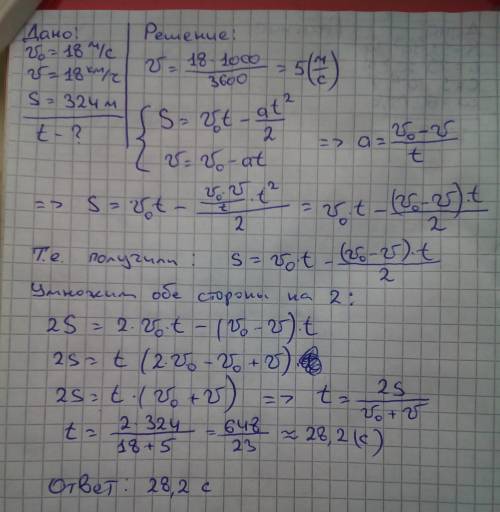 Дано: Решение:
v₀ = 18 м/с
v = 18 км/ч
S = 324 м
t - ?
v = 18·1000/3600 = 5 (м/с)
{ S = v₀t - at²/2
{ v = v₀ - at => a = (v₀ - v)/t
=> S = v₀t - ((v₀ v)/t · t²)/2 = v₀·t - (v₀ - v)·t/2
Т.е. получили: S = v₀·t - (v₀ - v)·t/2
Умножим обе стороны на 2:
2S = 2·v₀·t - (v₀ - v)·t
2S = t (2·v₀ - v₀ + v)
2S = t·(v₀ + v) => t = 2S/(v₀ + v)
t = 2·324/(18 + 5) = 648/23 ≈ 28,2 (с)
Ответ: 28,2 с